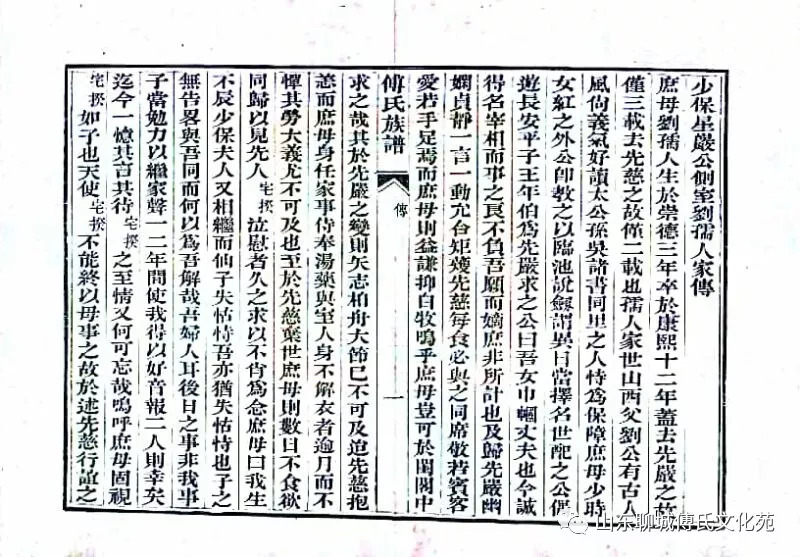 少保星巖公側室劉孺人家傳
庶母劉孺人生於崇德三年卒於康熙十二年蓋去先嚴之故
僅三載去先慈之故僅二載也孺人家世山西父劉公有古人
風尙義氣好讀太公孫吳諸書同里之人恃為保障庶母少時
女紅之外公卽敎之以臨池說劍謂異日當擇名世配之公偶
遊長安平子王年伯為先嚴求之公曰吾女巾幗丈夫也今誠
得名宰相而事之良不負吾願而嫡庶非所計也及歸先嚴幽
嫻貞靜一言一動允合矩矱先慈每食必與之同席敬若賓客
愛若手足焉而庶母則益謙抑自牧嗚乎庶母豈可於閨閣中
傅氏族譜
傳
一
求之哉其於先嚴之變則矢志柏舟大節已不可及迨先慈抱
恙而庶母身任家事侍奉湯藥與室人身不解衣者逾月而不
憚其勞大義尤不可及也至於先慈棄世庶母則數日不食欲
同歸以見先人宅揆泣慰者久之求以不肯為念庶母曰我生
不辰少保夫人又相繼而仙子失怙恃吾亦猶失怙恃也子之
無告畧與吾同而何以為吾解哉吾婦人耳後日之事非我事
子當勉力以繼家聲一二年間使我得以好音報二人則幸矣
迄今一憶其言其待宅揆之至情又何可忘哉嗚呼庶母固視
宅揆如子也天使宅揆不能終以母事之故於述先慈行誼之
山东聊城傅氏文化苑